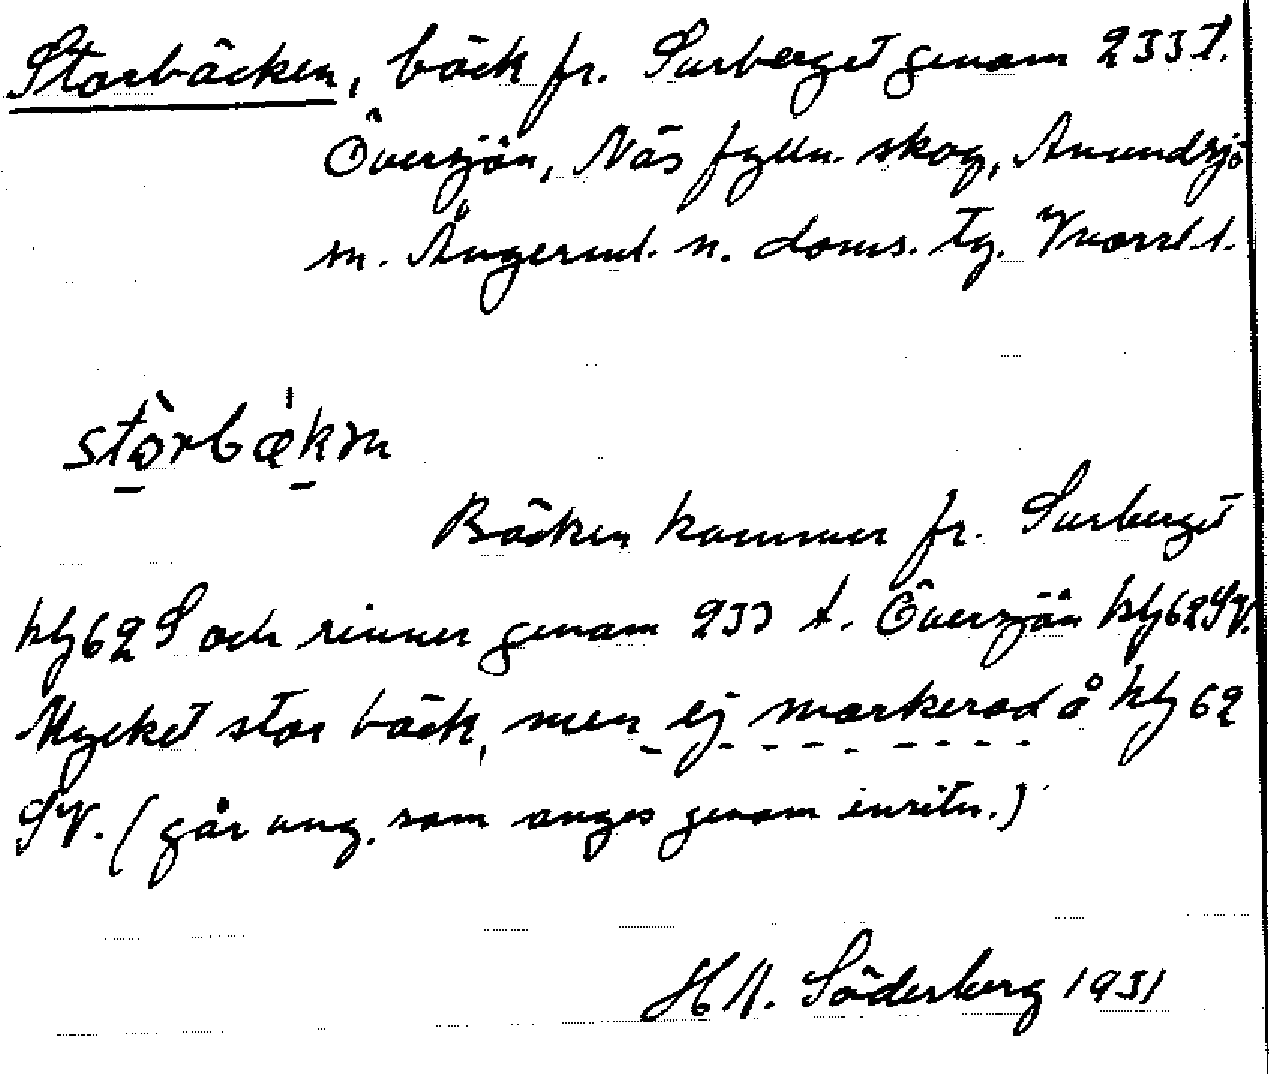 Storbäcken, bäck fr. Surberget genom 233 t.
Översjön, Näs fylln. skog, Anundsjö
sn. Ångerml. n. doms. tg. Vnorrl. l.
stòrbæ̀kṇ
Bäcken kommer fr. Surberget
kbl 62 S och rinner genom 233 t. Översjön kbl 62 SV.
Mycket stor bäck, men ej markerad å kbl 62
SV. (går ung. som anges genom inritn.)
H N. Söderberg 1931